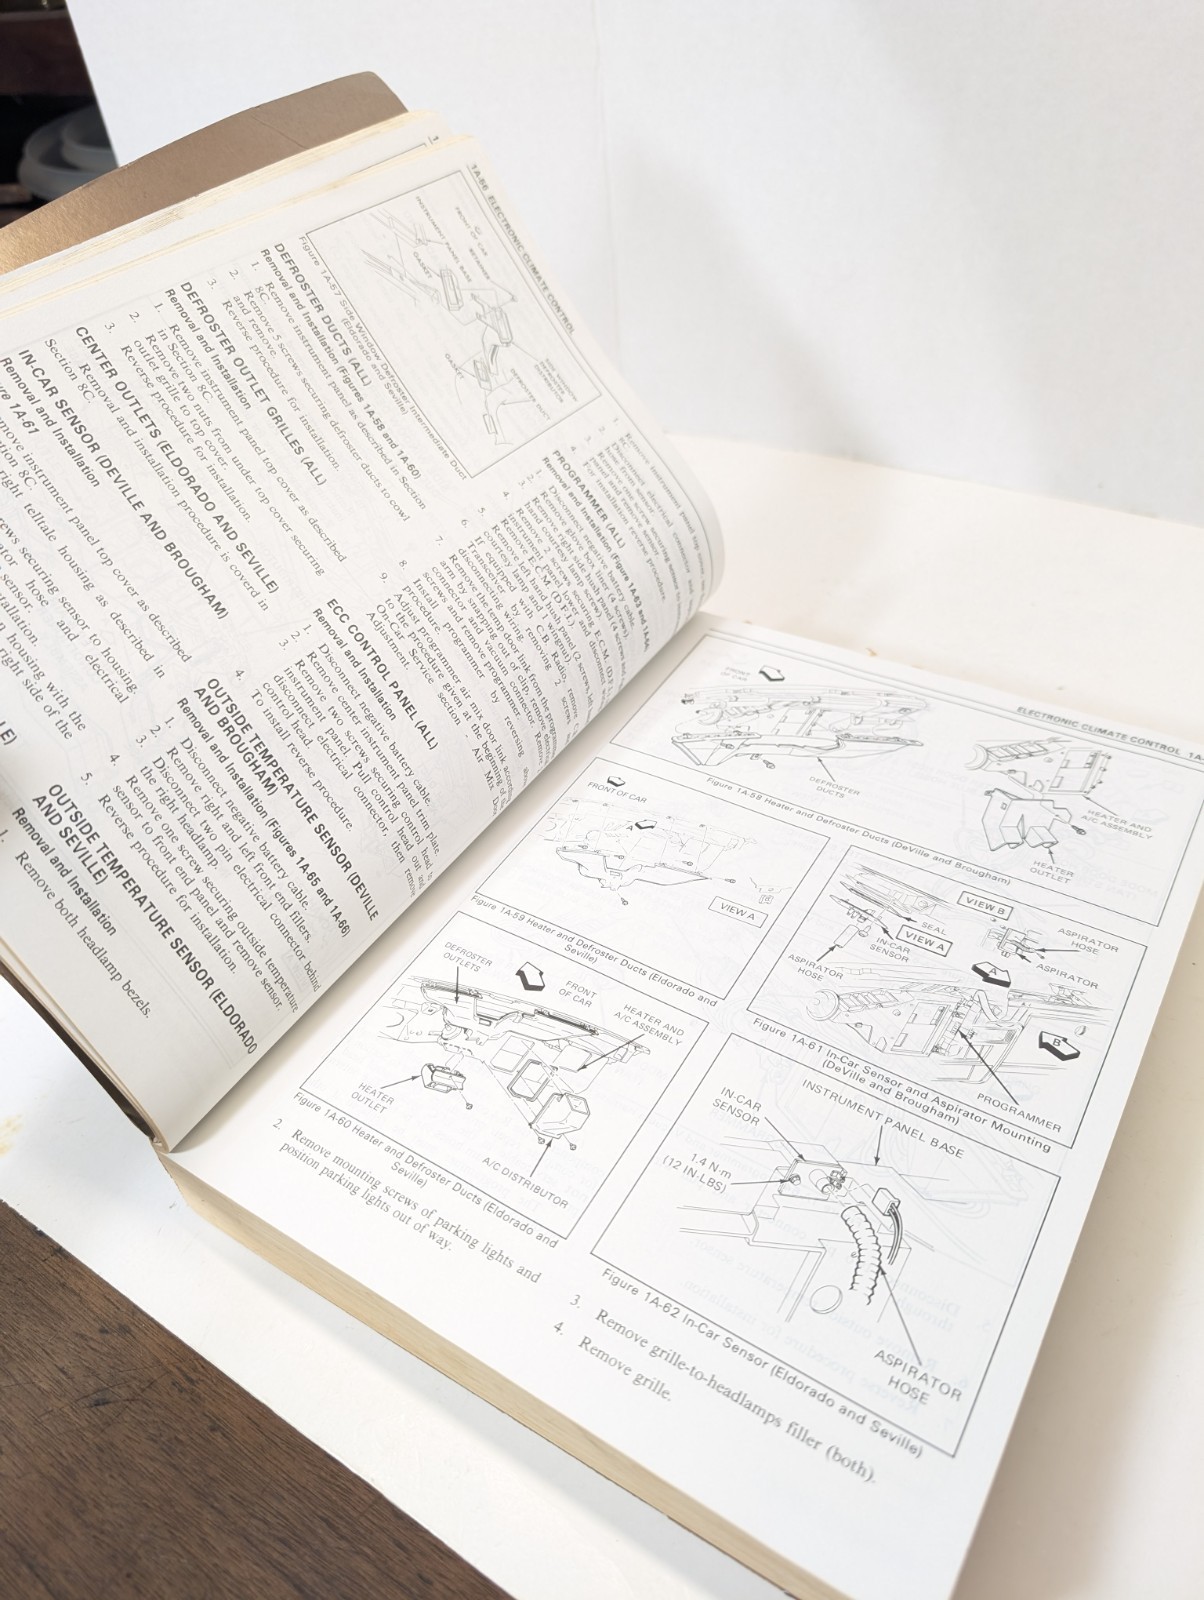 1A-66 ELECTRONIC CLIMATE CONTROL
INSTRUMENT PANEL BASE
FRONT OF CAR
RETAINER
GASKET
GASKET
SIDE WINDOW
DEFROSTER
DEFROSTER DUCT
Figure 1A-57 Side Window Defroster Intermediate Duct
(Eldorado and Seville)
DEFROSTER DUCTS (ALL)
Removal and Installation (Figures 1A-58 and 1A-60)
1. Remove instrument panel as described in Section
8C.
2. Remove 5 screws securing defroster ducts to cowl
and remove.
3. Reverse procedure for installation.
DEFROSTER OUTLET GRILLES (ALL)
Removal and Installation
1. Remove instrument panel top cover as described
in Section 8C.
2. Remove two nuts from under top cover securing
outlet grille to top cover.
3. Reverse procedure for installation.
CENTER OUTLETS (ELDORADO AND SEVILLE)
Removal and installation procedure is coverd in
Section 8C.
IN-CAR SENSOR (DEVILLE AND BROUGHAM)
Removal and Installation
1A-61
instrument panel top cover as described
8C.
right telltale housing as described in
securing sensor to housing,
hose and electrical
sensor.
housing with the
right side of the
PROGRAMMER (ALL)
Removal and Installation (Figures 1A-63 and 1A-64)
1. Disconnect negative battery cable.
2. Remove glove box liner (4 screws).
3. Remove right side hush panel (4 screws
hand courtesy lamp screw)
4. Remove 2 screws securing E.C.M.
instrument panel lower and
Remove E.C.M. (D.F.I.)
5. Remove left hand hush panel (2 screws,
courtesy lamp and 1 wingnut),
6. If equipped with C.B. Radio, remove
Transceiver by removing 2 screws
disconnecting wiring.
7. Remove the temp door link from the
arm by snapping out of clip, remove
connector and vacuum connector. Remove
screws and remove programmer.
8. Install programmer by reversing
procedure.
9. Adjust programmer air mix door link
to the procedure given at the beginning of
On-Car Service section - Air Mix
Adjustment.
ECC CONTROL PANEL (ALL)
Removal and Installation
1. Disconnect negative battery cable.
2. Remove center instrument panel trim plate.
3. Remove two screws securing control head to
instrument panel. Pull control head out and
disconnect electrical connector, then remove
control head.
4. To install reverse procedure.
OUTSIDE TEMPERATURE SENSOR (DEVILLE
AND BROUGHAM)
Removal and Installation (Figures 1A-65 and 1A-66)
1. Disconnect negative battery cable.
2. Remove right and left front end fillers.
3. Disconnect two pin electrical connector behind
the right headlamp.
4. Remove one screw securing outside temperature
sensor to front end panel and remove sensor.
5. Reverse procedure for installation.
OUTSIDE TEMPERATURE SENSOR (ELDORADO
AND SEVILLE)
Removal and Installation
1. Remove both headlamp bezels.
ELECTRONIC CLIMATE CONTROL 1A-
FRONT
OF CAR
DEFROSTER
DUCTS
HEATER AND
A/C ASSEMBLY
HEATER
OUTLET
Figure 1A-58 Heater and Defroster Ducts (DeVille and Brougham)
FRONT OF CAR
A
VIEW A
Figure 1A-59 Heater and Defroster Ducts (Eldorado and
Seville)
DEFROSTER
OUTLETS
FRONT
OF CAR
HEATER AND
A/C ASSEMBLY
HEATER
OUTLET
A/C DISTRIBUTOR
Figure 1A-60 Heater and Defroster Ducts (Eldorado and
Seville)
2 Remove mounting screws of parking lights and
position parking lights out of way.
VIEW B
SEAL
VIEW A
IN-CAR
SENSOR
ASPIRATOR
HOSE
ASPIRATOR
HOSE
ASPIRATOR
A
B
PROGRAMMER
Figure 1A-61 In-Car Sensor and Aspirator Mounting
(DeVille and Brougham)
IN-CAR
SENSOR
INSTRUMENT PANEL BASE
1.4 N·m
(12 IN-LBS)
ASPIRATOR
HOSE
Figure 1A-62 In-Car Sensor (Eldorado and Seville)
3. Remove grille-to-headlamps filler (both).
4. Remove grille.